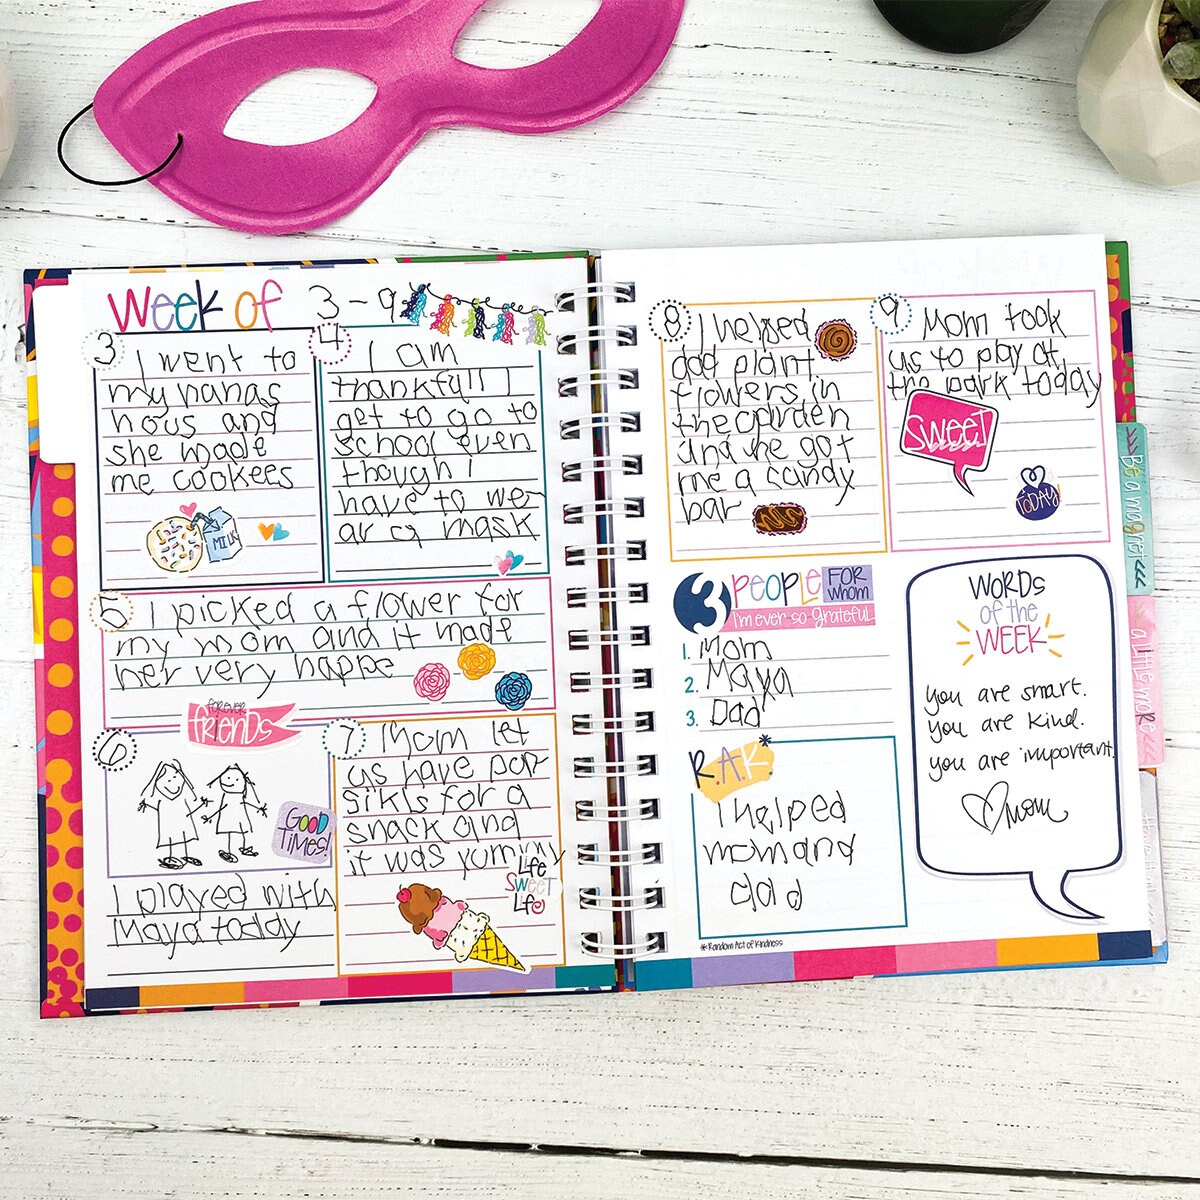 Week of 3 - 9
3
I went to
my nanas
hous and
she made
me cookees
MILK
4
I am
thankfull I
get to go to
school even
though I
have to we-
ar a mask
5
I picked a flower for
my mom and it made
her very happe
forever
friends
6
GOOD
TIMES!
I played with
Maya toddy
7
Mom let
us have pop
sikls for a
snack and
it was yummy
Life
SWEET
Life
8
I helped
dad plant
flowers in
the garden
and he got
me a candy
bar
9
Mom took
us to play at
the park today
SWEET
TODAY
3 PEOPLE FOR whom
I'm ever so grateful
1. Mom
2. Maya
3. Dad
R.A.K*
I helped
mom and
dad
*Random Act of Kindness
WORDS
of the
WEEK
you are smart.
you are kind.
you are important.
mom
Be a magnet <<<
a little more <<<